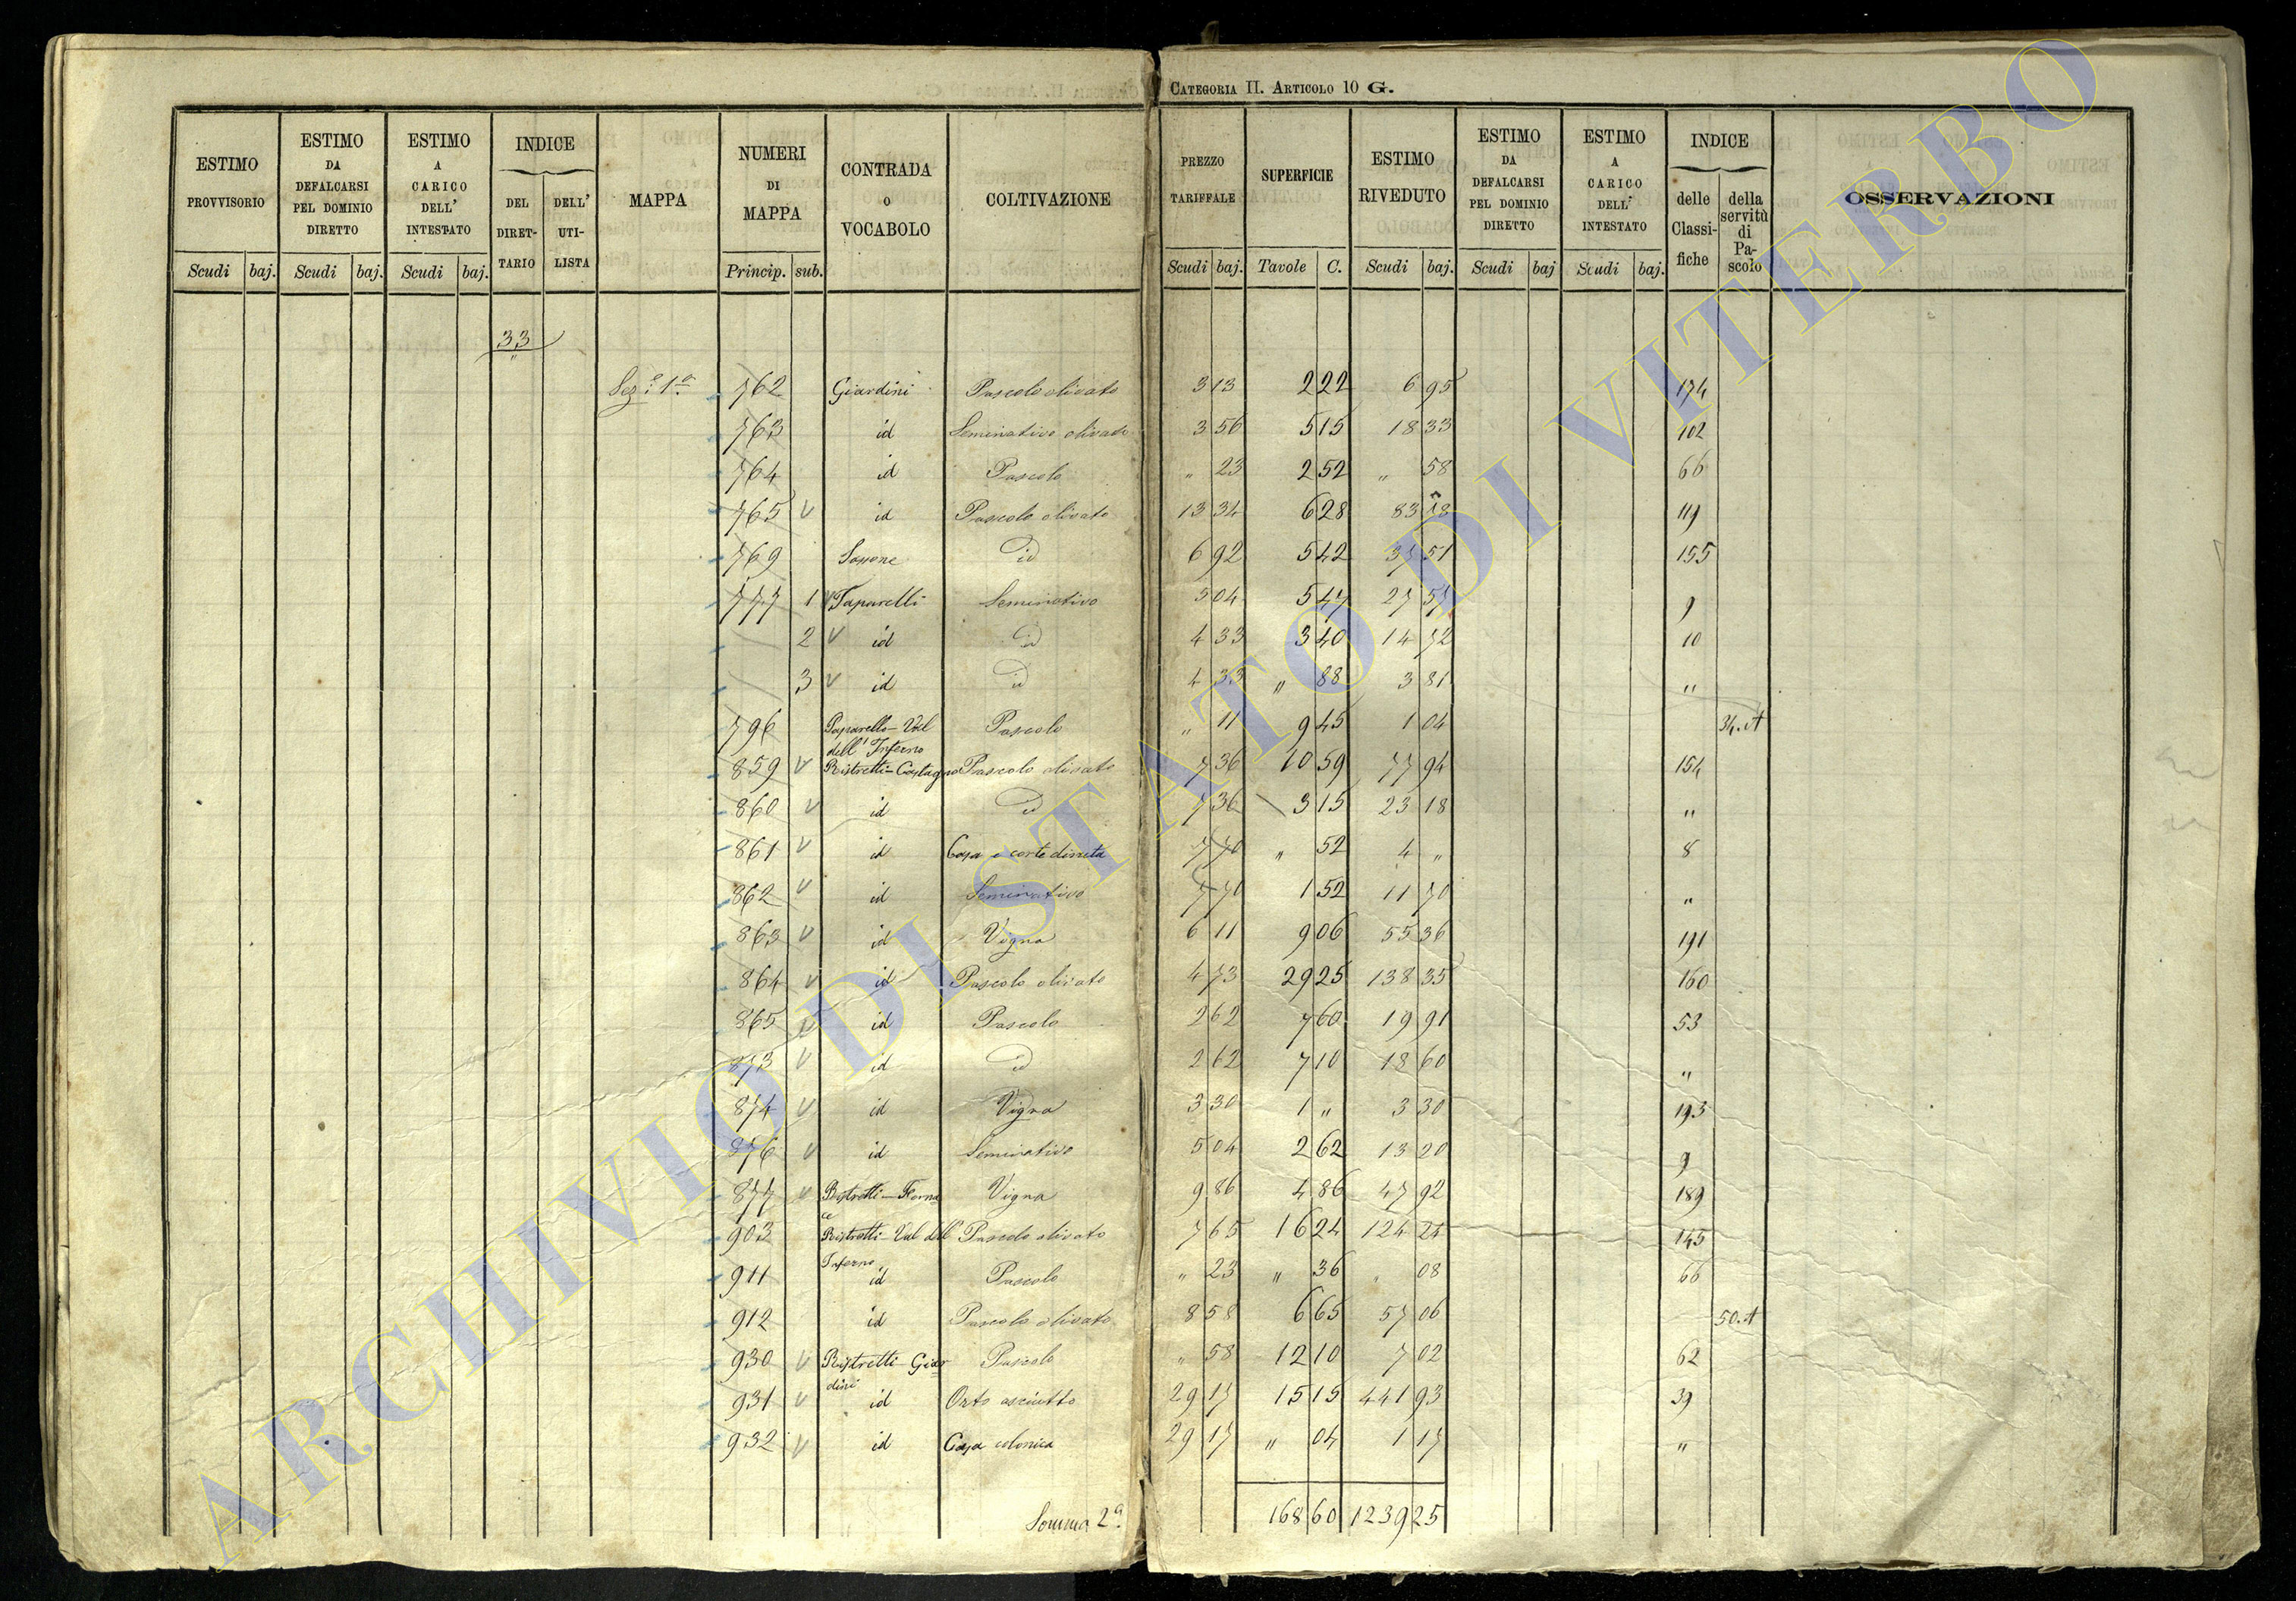 CATEGORIA II. ARTICOLO 10 G.
ESTIMO PROVVISORIO Scudi baj. ESTIMO DA DEFALCARSI PEL DOMINIO DIRETTO Scudi baj. ESTIMO A CARICO DELL' INTESTATO Scudi baj. INDICE DEL DIRET-TARIO DELL' UTI-LISTA MAPPA NUMERI DI MAPPA Princip. sub. CONTRADA O VOCABOLO COLTIVAZIONE PREZZO TARIFFALE Scudi baj. SUPERFICIE Tavole C. ESTIMO RIVEDUTO Scudi baj. ESTIMO DA DEFALCARSI PEL DOMINIO DIRETTO Scudi baj ESTIMO A CARICO DELL' INTESTATO Scudi baj. INDICE delle Classi-fiche della servitù di Pa-scolo OSSERVAZIONI
33
Sez.e 1a 762 Giardini Pascolo olivato 3 13 2 22 6 95 174
763 id Seminativo olivato 3 56 5 15 18 33 102
764 id Pascolo " 23 2 52 " 58 66
765 V id Pascolo olivato 13 34 6 28 83 119
769 id 6 92 5 42 37 51 155
777 1 V Paparelli Seminativo 5 04 5 47 27 57 9
2 V id id 4 33 3 40 14 72 10
3 V id id 4 33 " 88 3 81 "
796 Paparello - Val dell' Inferno Pascolo " 11 9 45 1 04 34. A
859 V Ristretti - Castagno Pascolo olivato 7 36 10 59 77 94 154
860 V id id 7 36 3 15 23 18 "
861 V id Casa e corte diruta 7 70 " 52 4 " 8
862 V id Seminativo 7 70 1 52 11 70 "
863 V id Vigna 6 11 9 06 55 36 191
864 V id Pascolo olivato 4 73 29 25 138 35 160
865 V id Pascolo 2 62 7 60 19 91 53
873 V id id 2 62 7 10 18 60 "
874 V id Vigna 3 30 1 " 3 30 193
876 V id Seminativo 5 04 2 62 13 20 9
877 V Ristretti - Fornace Vigna 9 86 4 86 47 92 189
903 Ristretti - Val dell' Inferno Pascolo olivato 7 65 16 24 124 24 145
911 id Pascolo " 23 " 36 " 08 66
912 id Pascolo olivato 8 58 6 65 57 06 50. A
930 V Ristretti - Giardini Pascolo " 58 12 10 7 02 62
931 V id Orto asciutto 29 17 15 15 441 93 39
932 V id Casa colonica 29 17 " 04 1 17 "
Somma 2a. 168 60 1239 25
ARCHIVIO DI STATO DI VITERBO